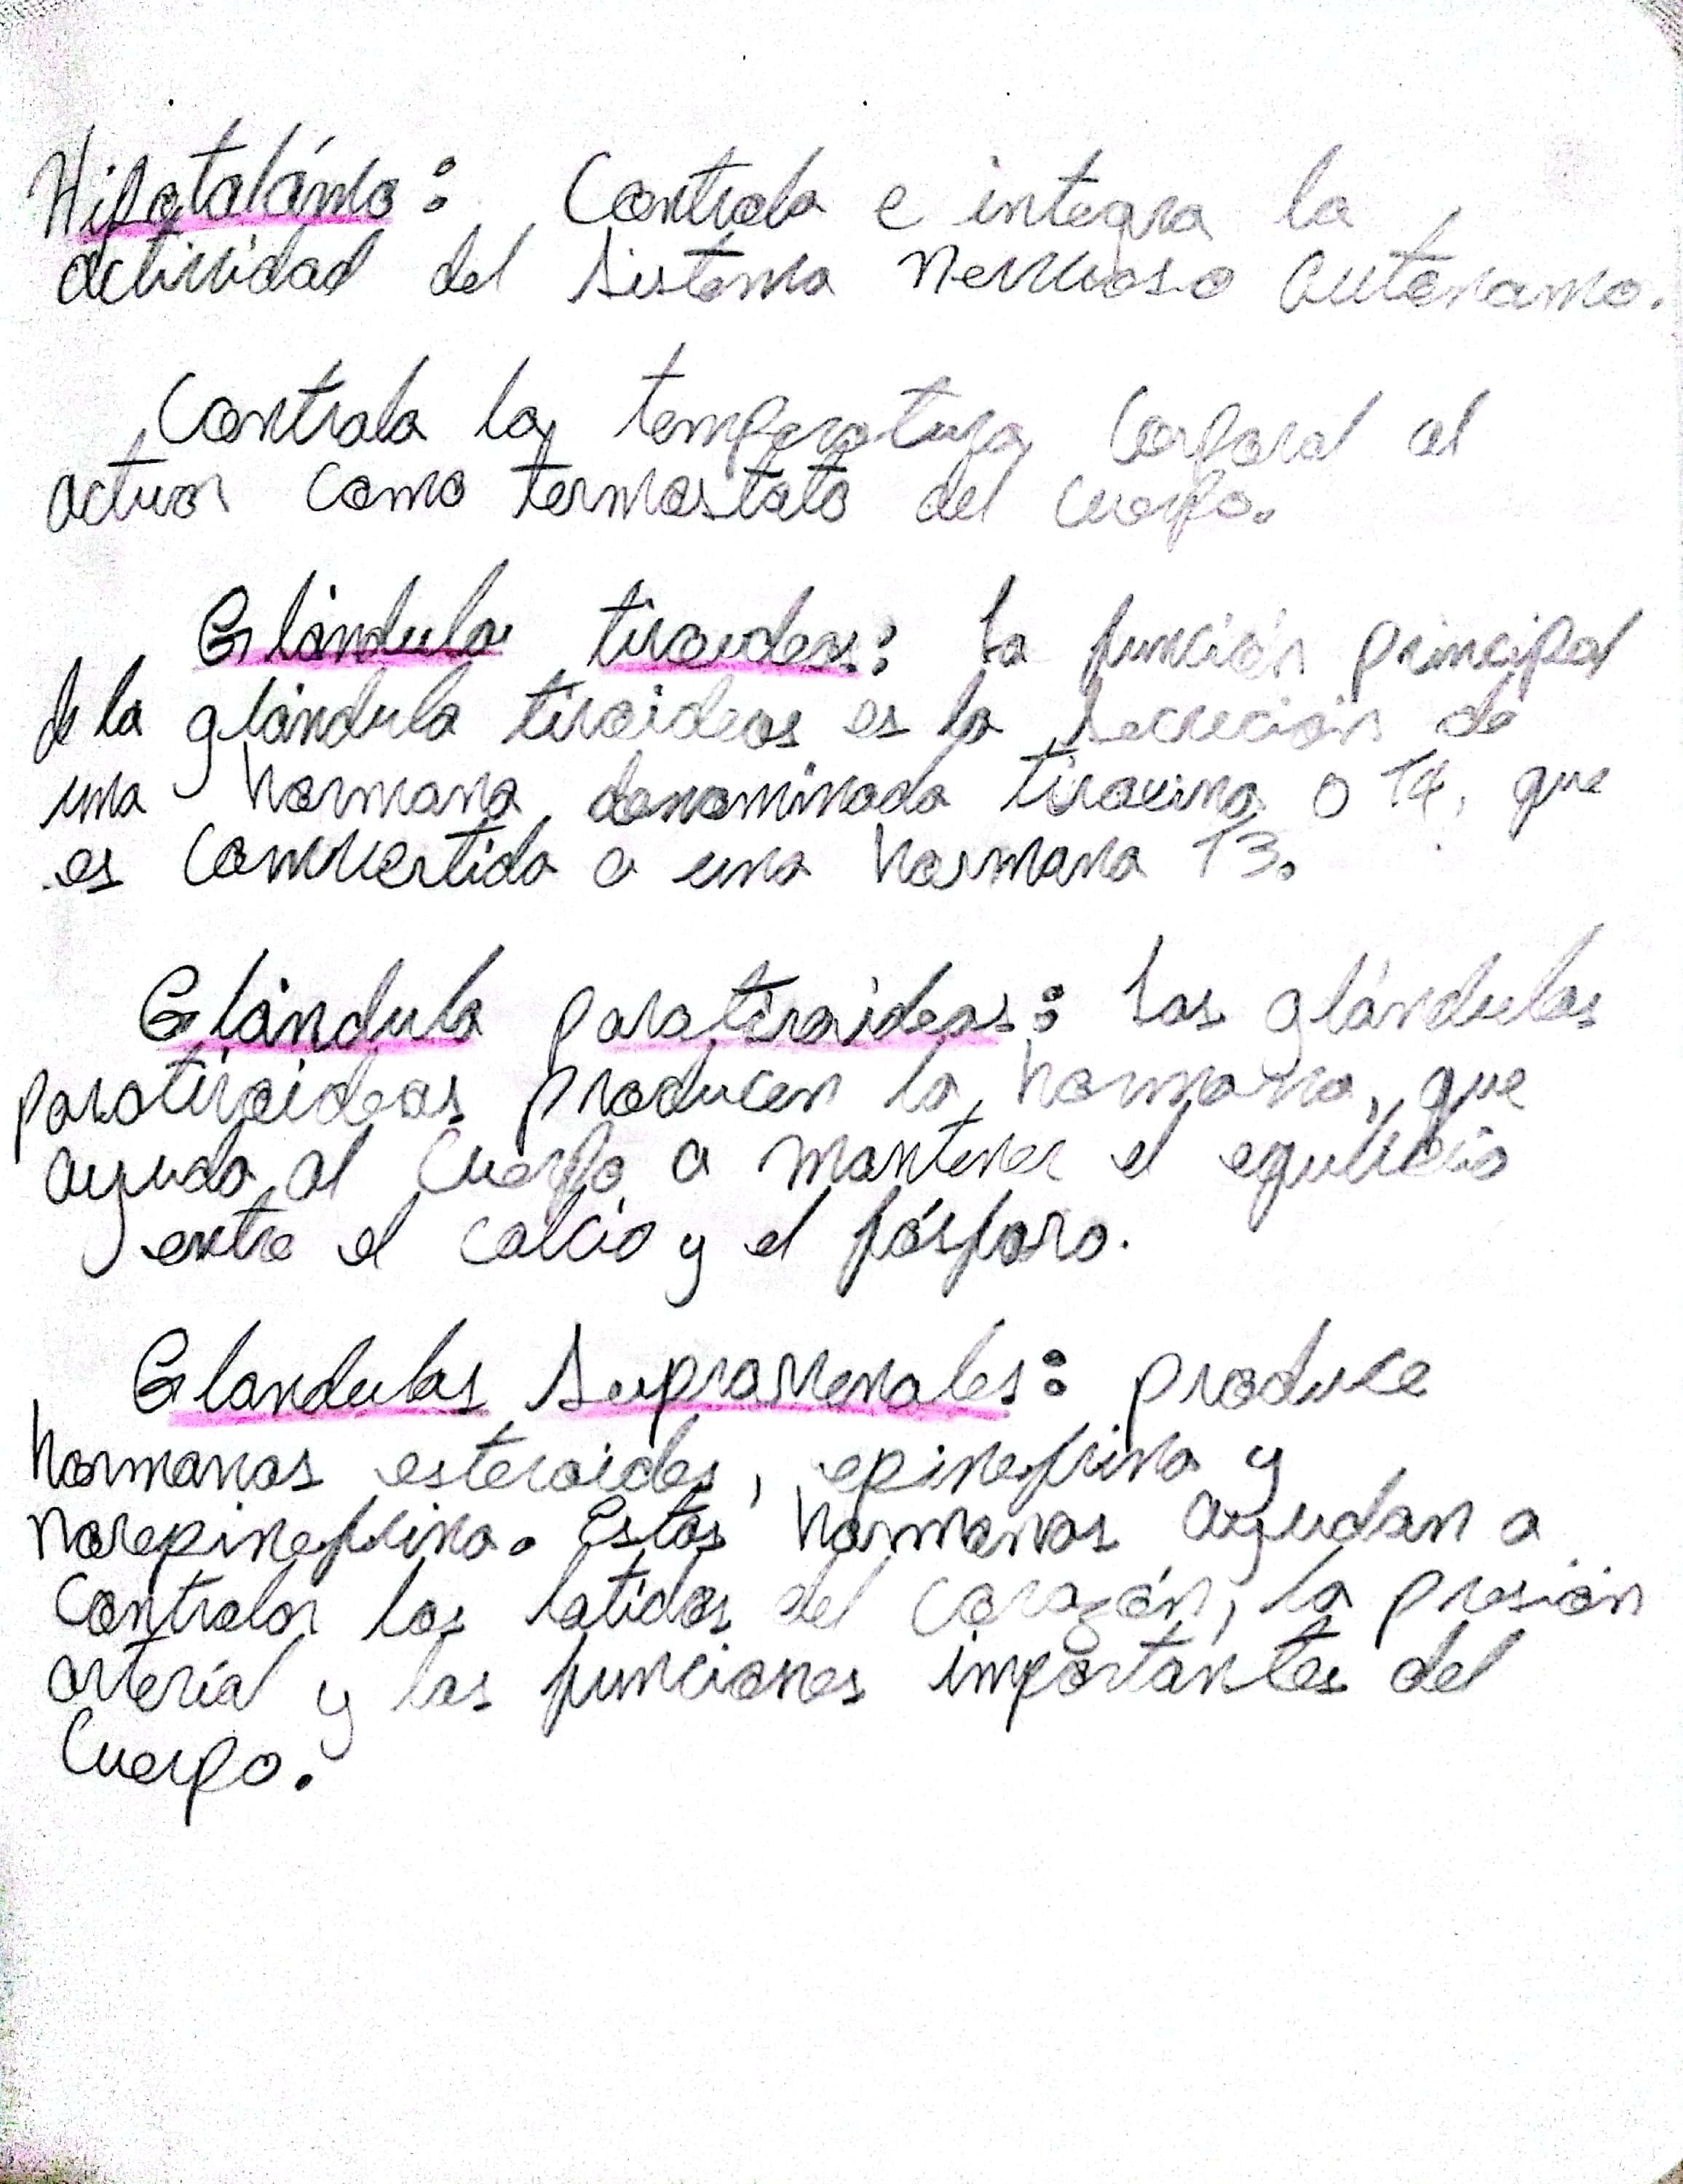 Hipotalámo: Controla e integra la
actividad del sistema nervioso autonamo.
Controla la temperatura corporal al
actuar como termostato del cuerpo.
Glándula tiroideas: La función principal
de la glándula tiroideas es la secreción de
una hormona denominada tiroxina o T4, que
es convertida a una hormona T3.
Glándula paratiroideas: Las glándulas
paratiroideas producen la hormona, que
ayuda al cuerpo a mantener el equilibrio
entre el calcio y el fósforo.
Glandulas suprarrenales: produce
hormonas esteroides, epinefrina y
norepinefrina. Estas hormonas ayudan a
controlar los latidos del corazón, la presión
artería y las funciones importantes del
cuerpo.